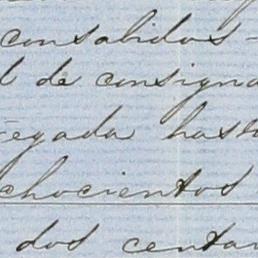 consabidos-
l de consigna
regada hasta
chocientos
dos centa